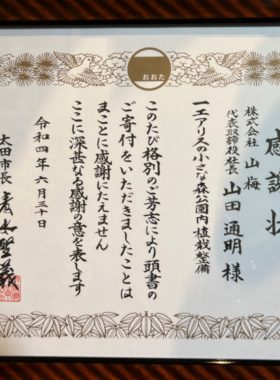 感謝状
株式会社 山梅
代表取締役社長 山田通明 様
一エアリスの小さな森公園内植栽整備
このたび格別のご芳志により頭書の
ご寄付をいただきましたことは
まことに感謝にたえません
ここに深甚なる感謝の意を表します
令和四年六月三十日
太田市長
おおた